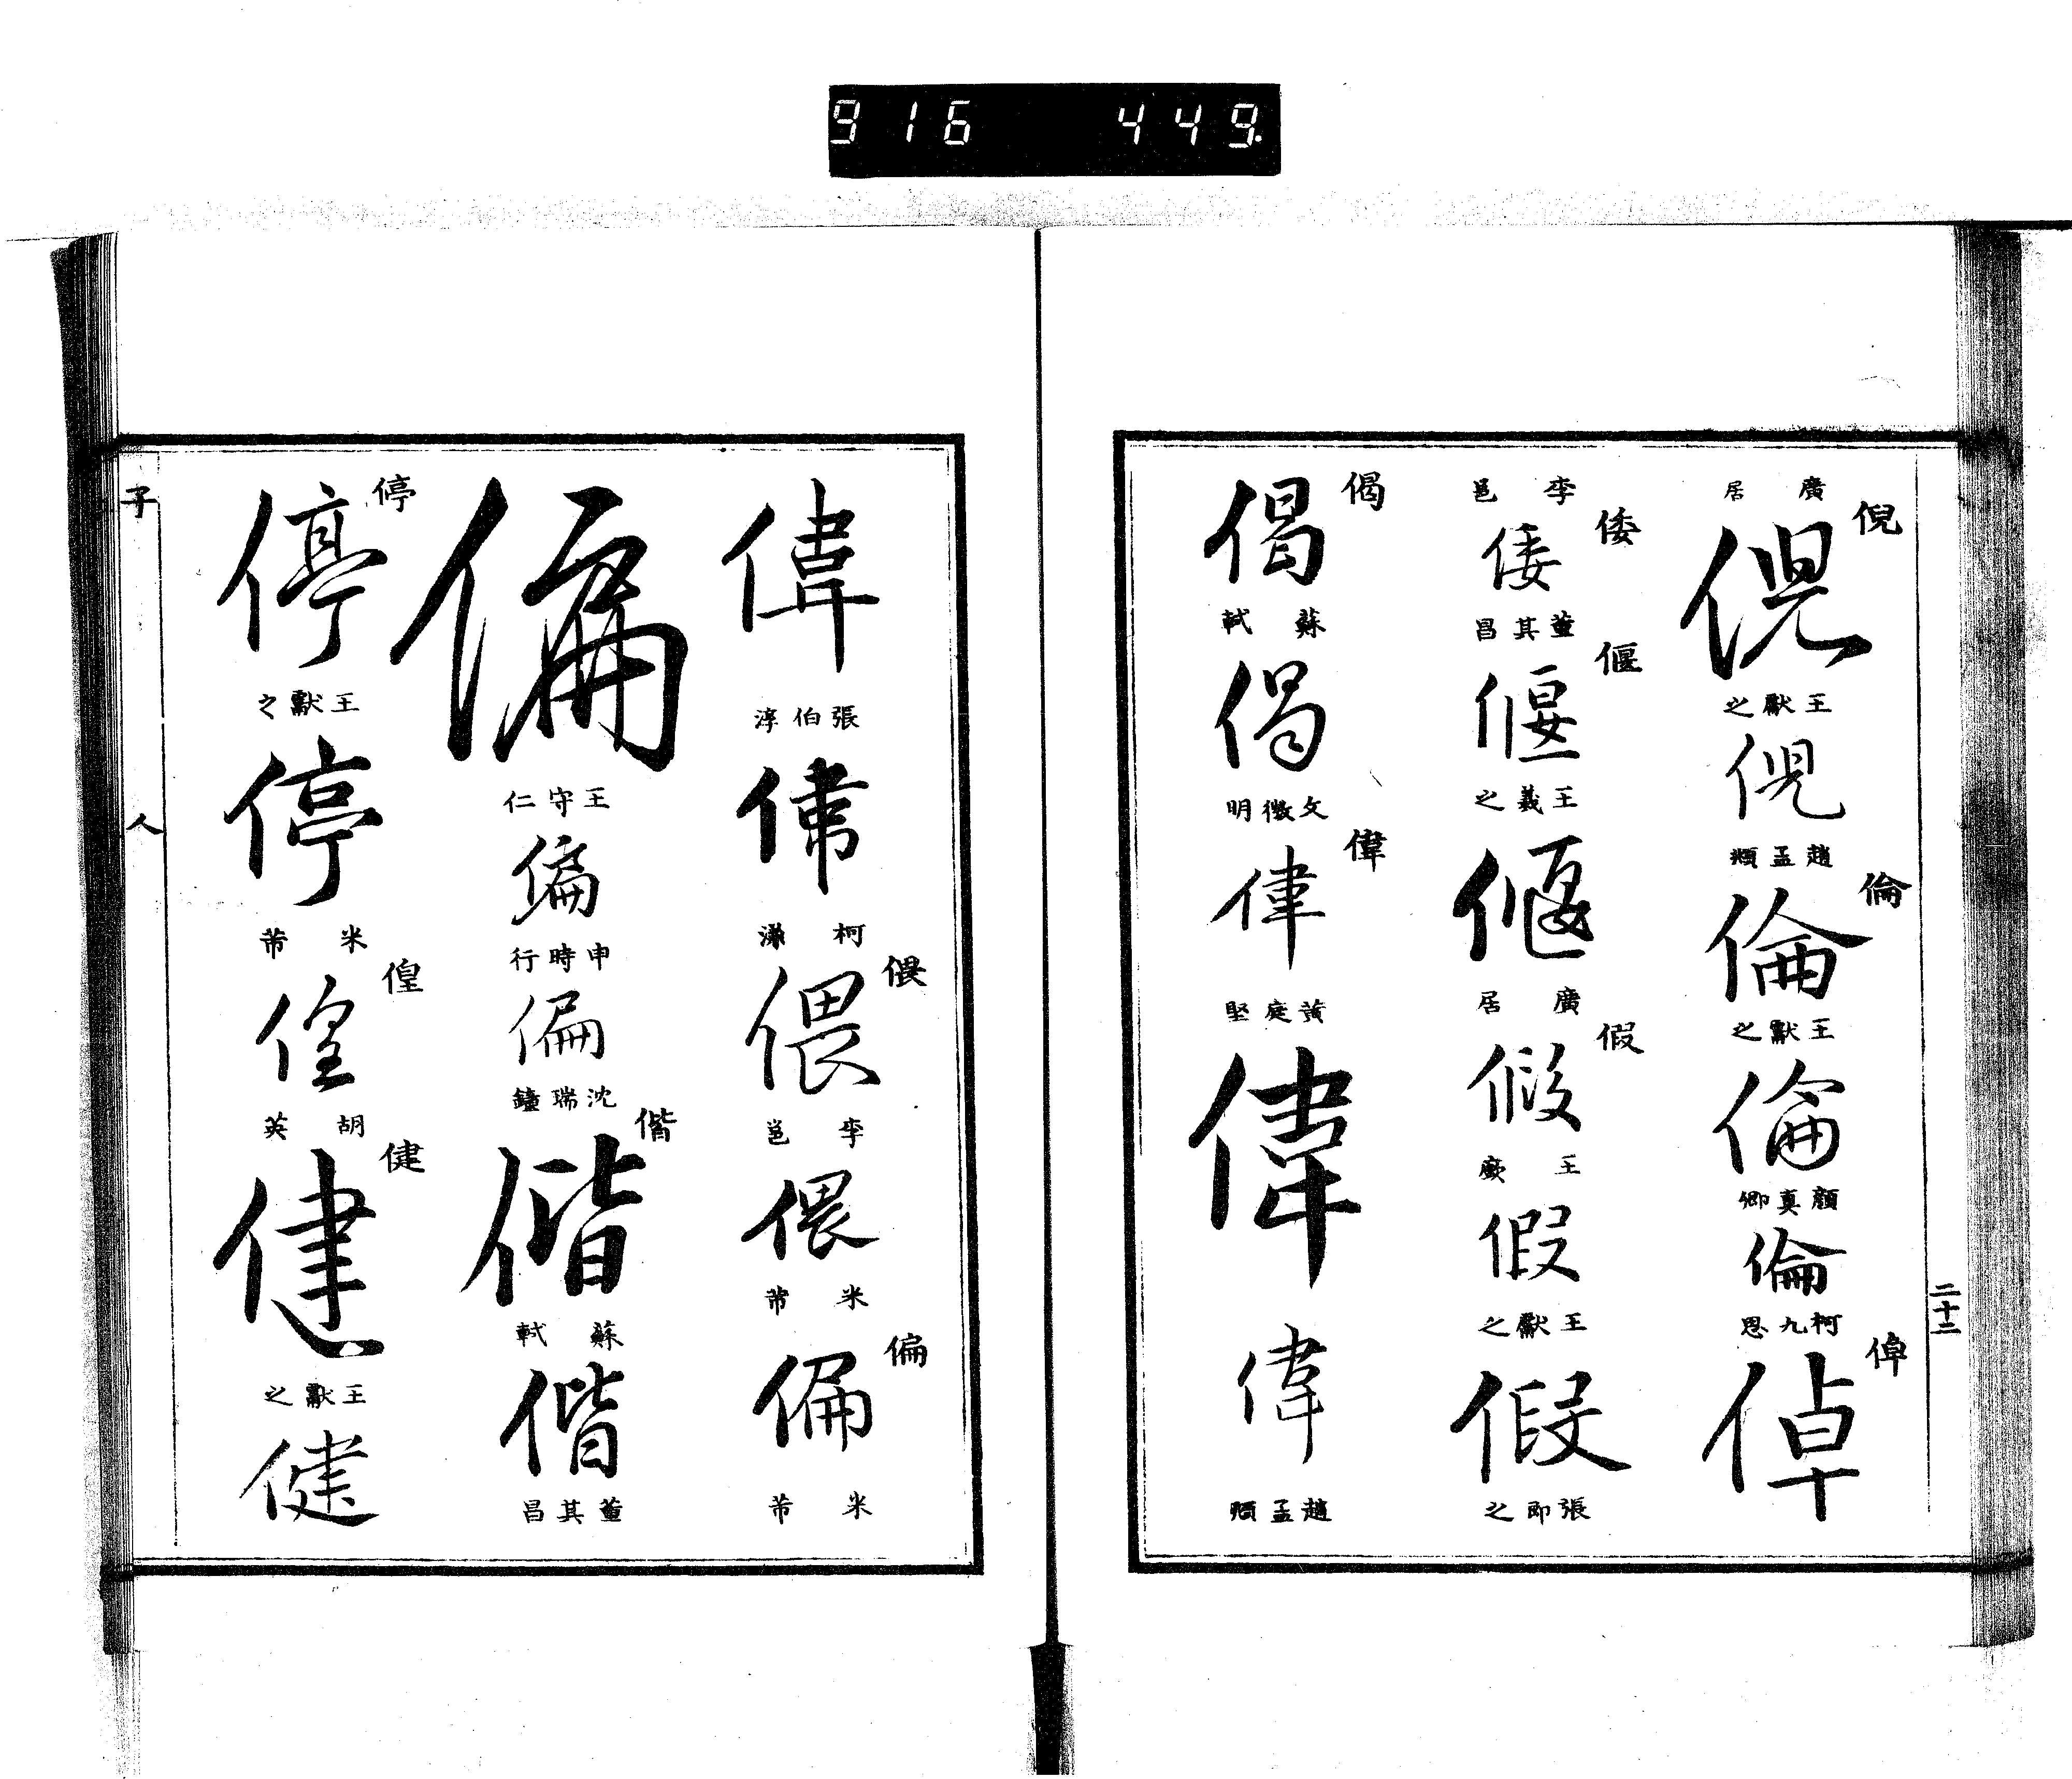 916 449
二十二
倪
廣居
倪
王獻之
倪
趙孟頫
倫
倫
王獻之
倫
顏真卿
倫
柯九思
倬
倬
李邕
倭
倭
董其昌
偃
偃
王羲之
偃
廣居
假
假
王廞
假
王獻之
假
張即之
偈
偈
蘇軾
偈
文徵明
偉
偉
黃庭堅
偉
偉
趙孟頫
偉
張伯淳
偉
柯
偎
偎
李邕
偎
米芾
偏
偏
米芾
偏
王守仁
偏
申時行
偏
沈瑞鐘
偕
偕
蘇軾
偕
董其昌
停
停
王獻之
停
米芾
偟
偟
胡英
健
健
王獻之
健
子
人